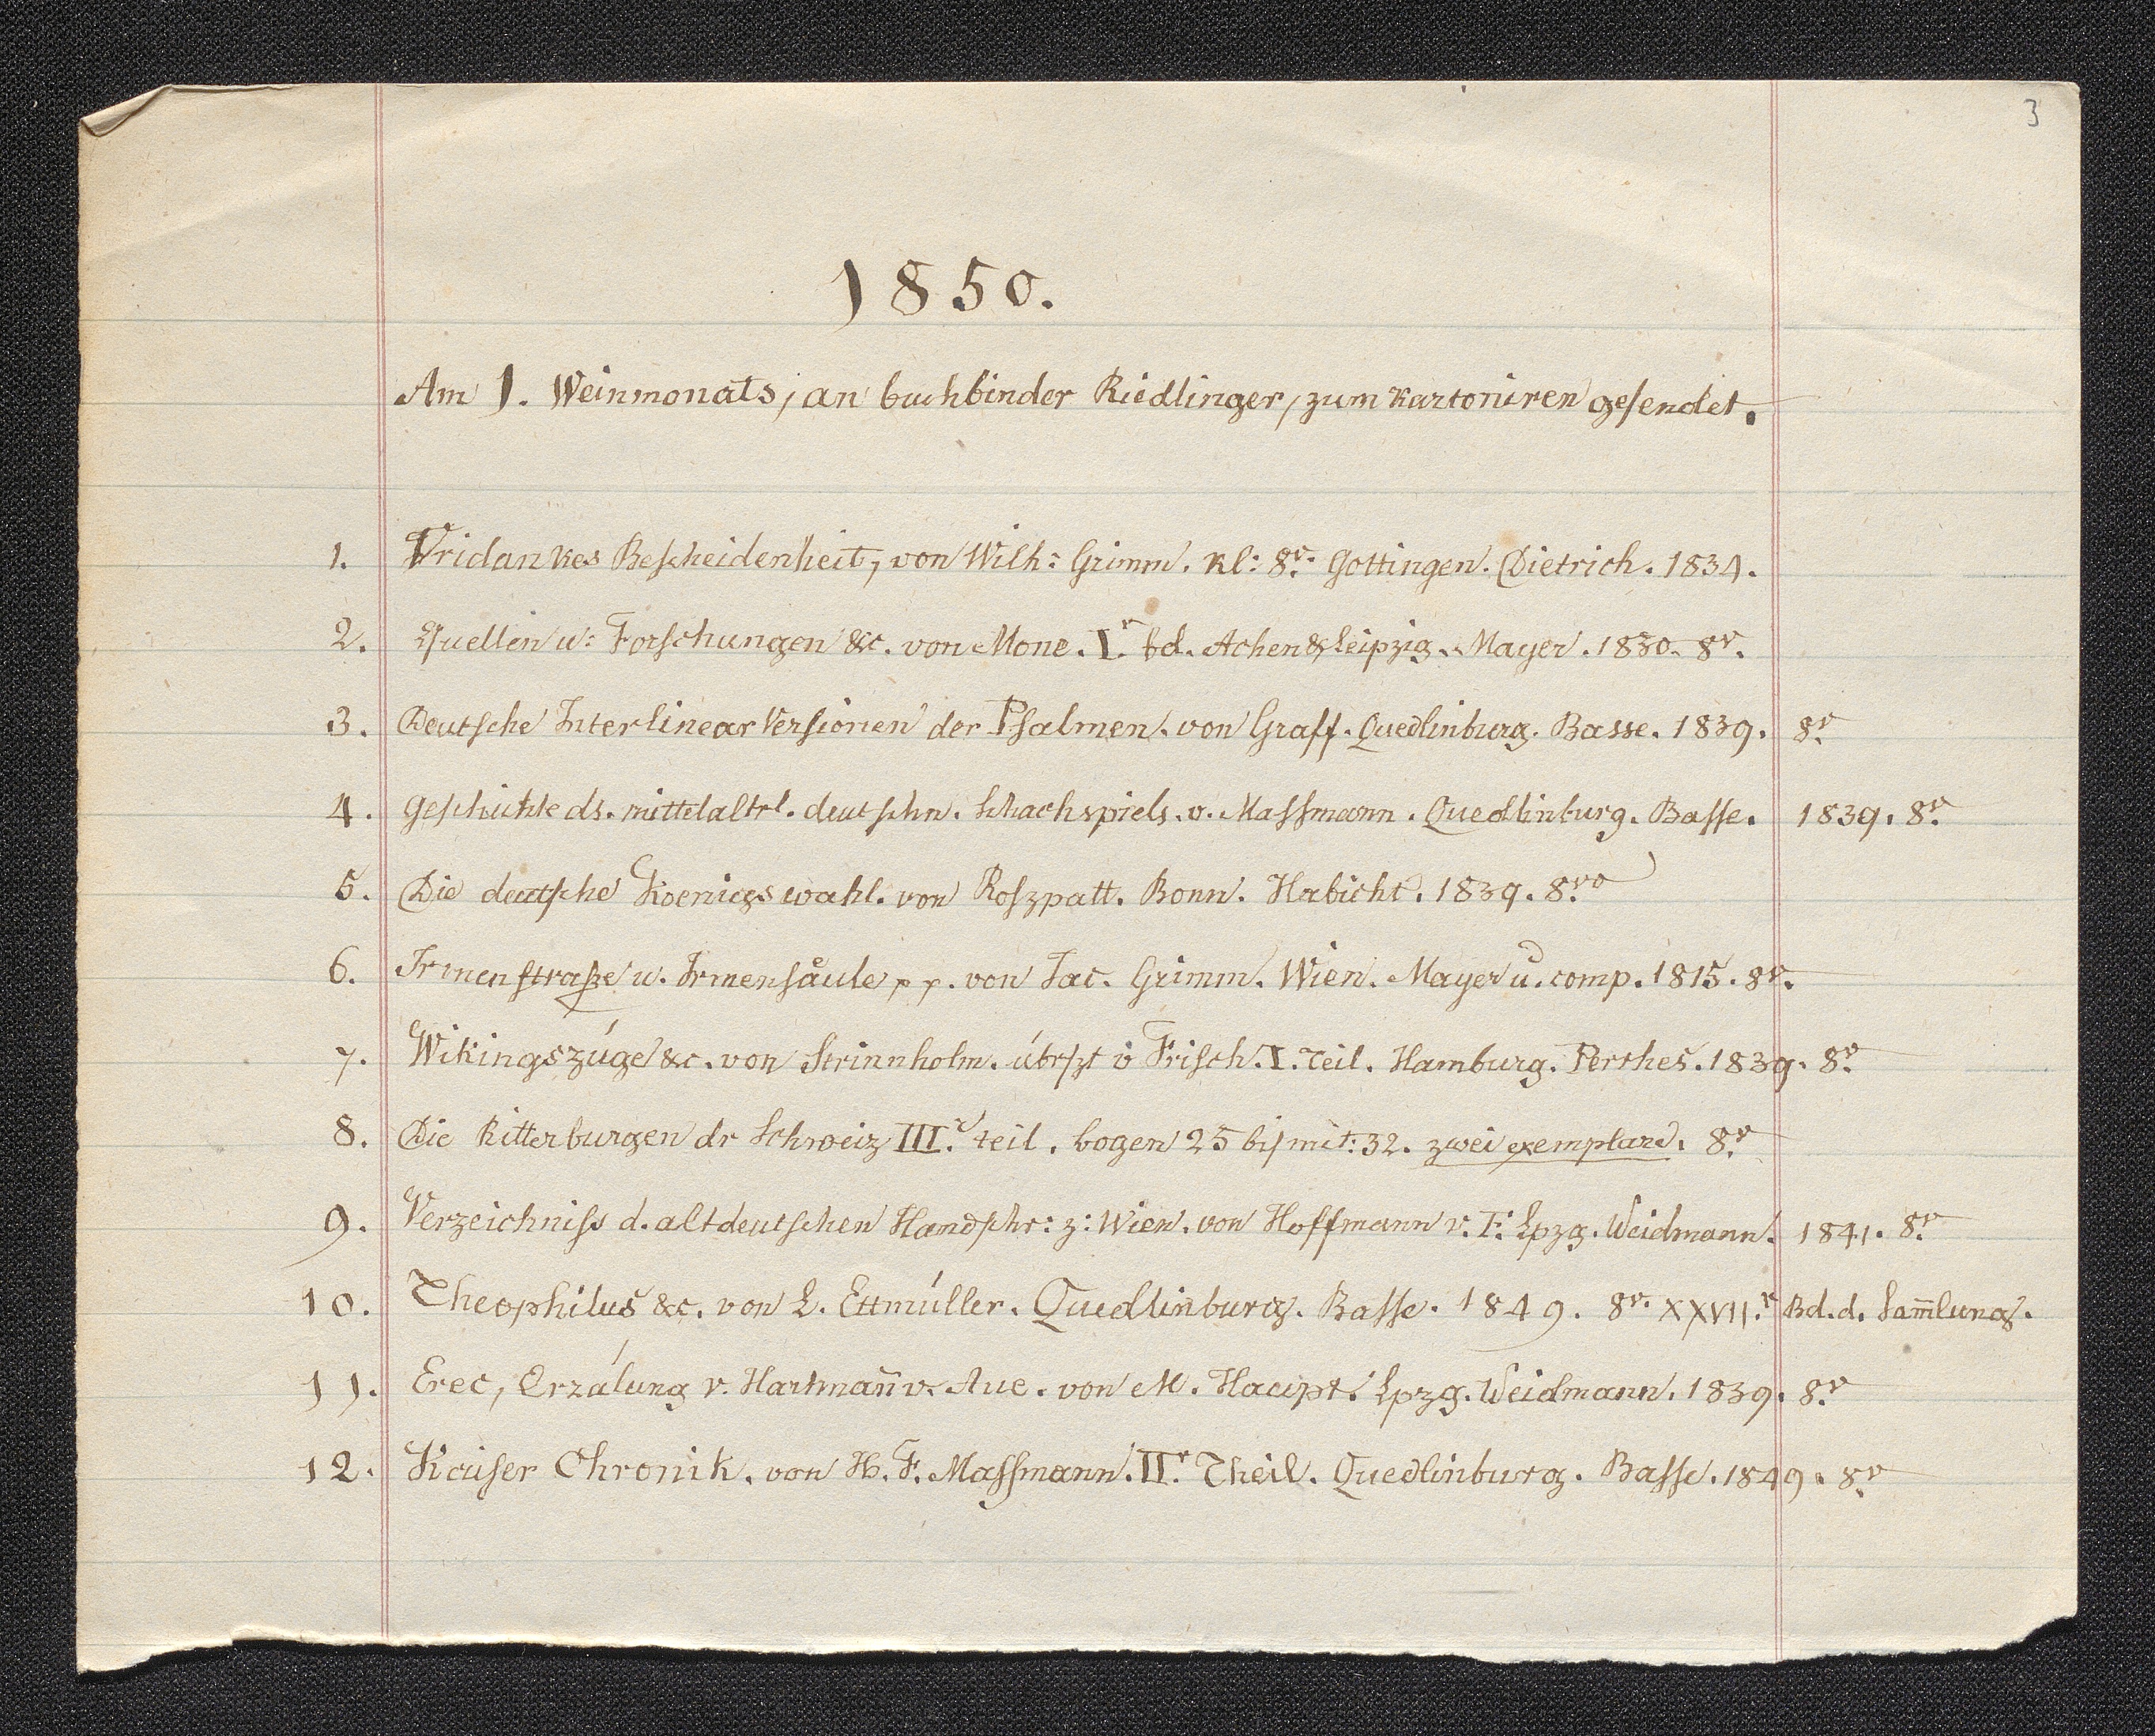 3
1850.
Am 1. Weinmonats, an buchbinder Riedlinger, zum kartoniren gesendet.
1. Vridankes Bescheidenheit, von Wilh: Grimm. kl: 8v. Gottingen. Dietrich. 1834.
2. Quellen u: Forschungen &c. von Mone. Ir bd. Achen & Leipzig. Mayer. 1830. 8v.
3. Deutsche Interlinear Versionen der Psalmen. von Graff. Quedlinburg. Basse. 1839. 8v.
4. Geschichte ds. mittelaltrl. deutschn. Schachspiels. v. Massmann. Quedlinburg. Basse. 1839. 8v.
5. Die deutsche Koenigswahl. von Roszpatt. Bonn. Habicht. 1839. 8vo
6. Irmenstraße u. Irmensäule pp. von Jac. Grimm. Wien. Mayer u. comp. 1815. 8v.
7. Wikingszúge &c. von Strinnholm. úbrszt v Frisch. I. Teil. Hamburg. Perthes. 1839. 8v.
8. Die Ritterburgen dr Schweiz III. teil. bogen 25 bis mit: 32. zwei exemplare. 8v.
9. Verzeichniss d. altdeutschen Handschr: z: Wien. von Hoffmann v. F. Lpzg. Weidmann. 1841. 8v.
10. Theophilus &c. von L. Ettmúller. Quedlinburg. Basse. 1849. 8v. XXVII.r Bd. d. Sam̄lung.
11. Erec, Erzálung v. Hartman̄ v. Aue. von M. Haupt. Lpzg. Weidmann. 1839. 8v.
12. Kaiser Chronik. von H. F. Massmann. IIr. Theil. Quedlinburg. Basse. 1849. 8v.